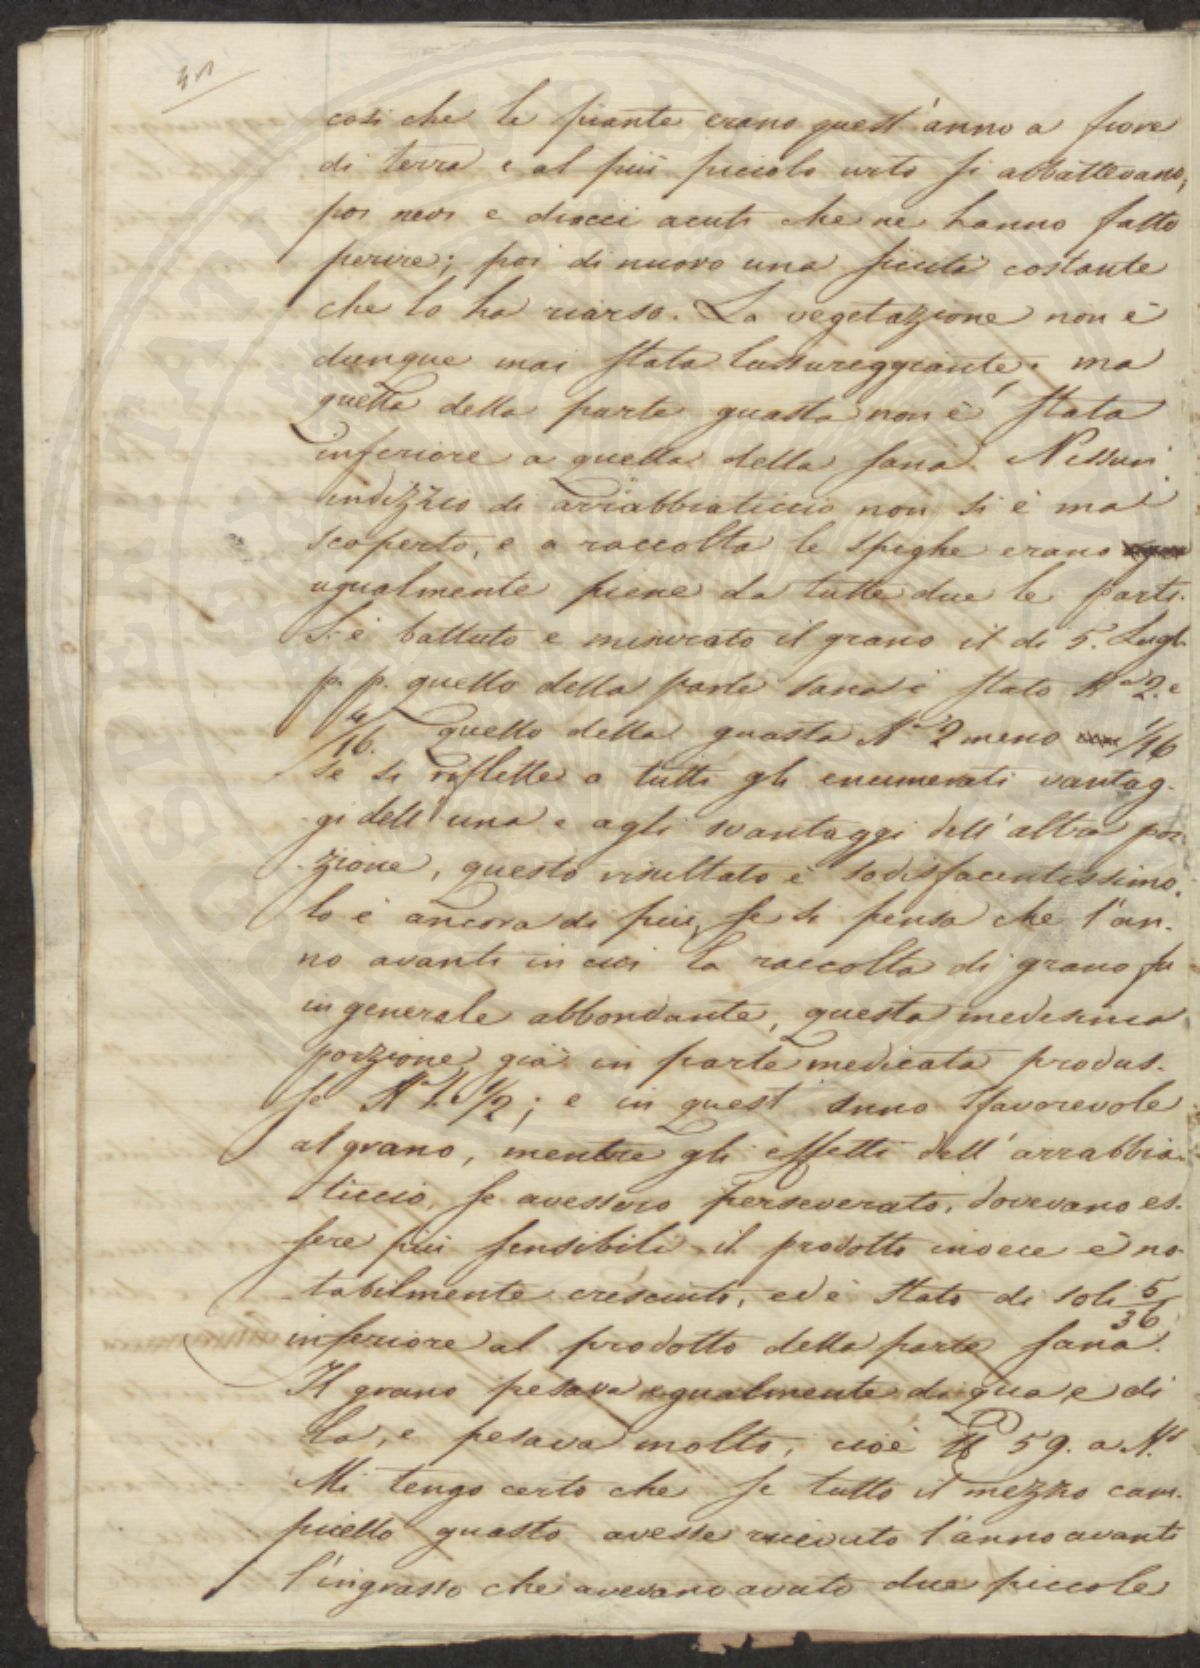 così che le piante erano quest'anno a fiore
di terra e al più piccolo urto si abbattevano;
poi nevi e diacci acuti che ne hanno fatto
perire; poi di nuovo una siccità costante
che lo ha riarso. La vegetazione non è
dunque mai stata lussureggiante, ma
quella della parte guasta non è stata
inferiore a quella della sana. Nissun
indizzio di arrabbiaticcio non si è mai
scoperto, e a raccolta le spighe erano
ugualmente piene da tutte due le parti.
Si è battuto e misurato il grano il dì 5. Lugl.
p. p. quello della parte sana è stato 2. e
4/16. Quello della guasta 2 meno 1/16
se si riflette a tutti gli enumerati vantag-
gi dell'una e agli svantaggi dell'altra por-
zione, questo risultato è sodisfacentissimo.
lo è ancora di più, se si pensa che l'an-
no avanti in cui la raccolta di grano fu
in generale abbondante, questa medesima
porzione già in parte medicata produs-
se 1. 1/2; e in quest'anno sfavorevole
al grano, mentre gli effetti dell'arrabbia-
ticcio, se avessero perseverato, dovevano es-
sere più sensibili il prodotto invece è no-
tabilmente cresciuto, ed è stato di soli 5/36
inferiore al prodotto della parte sana.
Il grano pesava egualmente di qua e di
la, e pesava molto, cioè 59. a
Mi tengo certo che se tutto il mezzo cam-
picello guasto avesse ricevuto l'anno avanti
l'ingrasso che avevano avuto due piccole